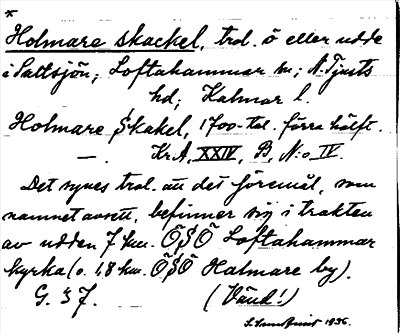 *
Holmare skackel, trol. ö eller udde
i Saltsjön; Loftahammar sn; N. Tjusts
hd; Kalmar l.
Holmare Skakel, 1700-tal. förra hälft.
—. Kr.A, XXIV, B, N:o IV.
Det synes trol. att det föremål, som
namnet avsett, befinner sig i trakten
av udden 7 km. ÖSÖ Loftahammar
kyrka (o. 1,8 km. ÖSÖ Halmare by).
G. 37. (Vänd!)
1936.